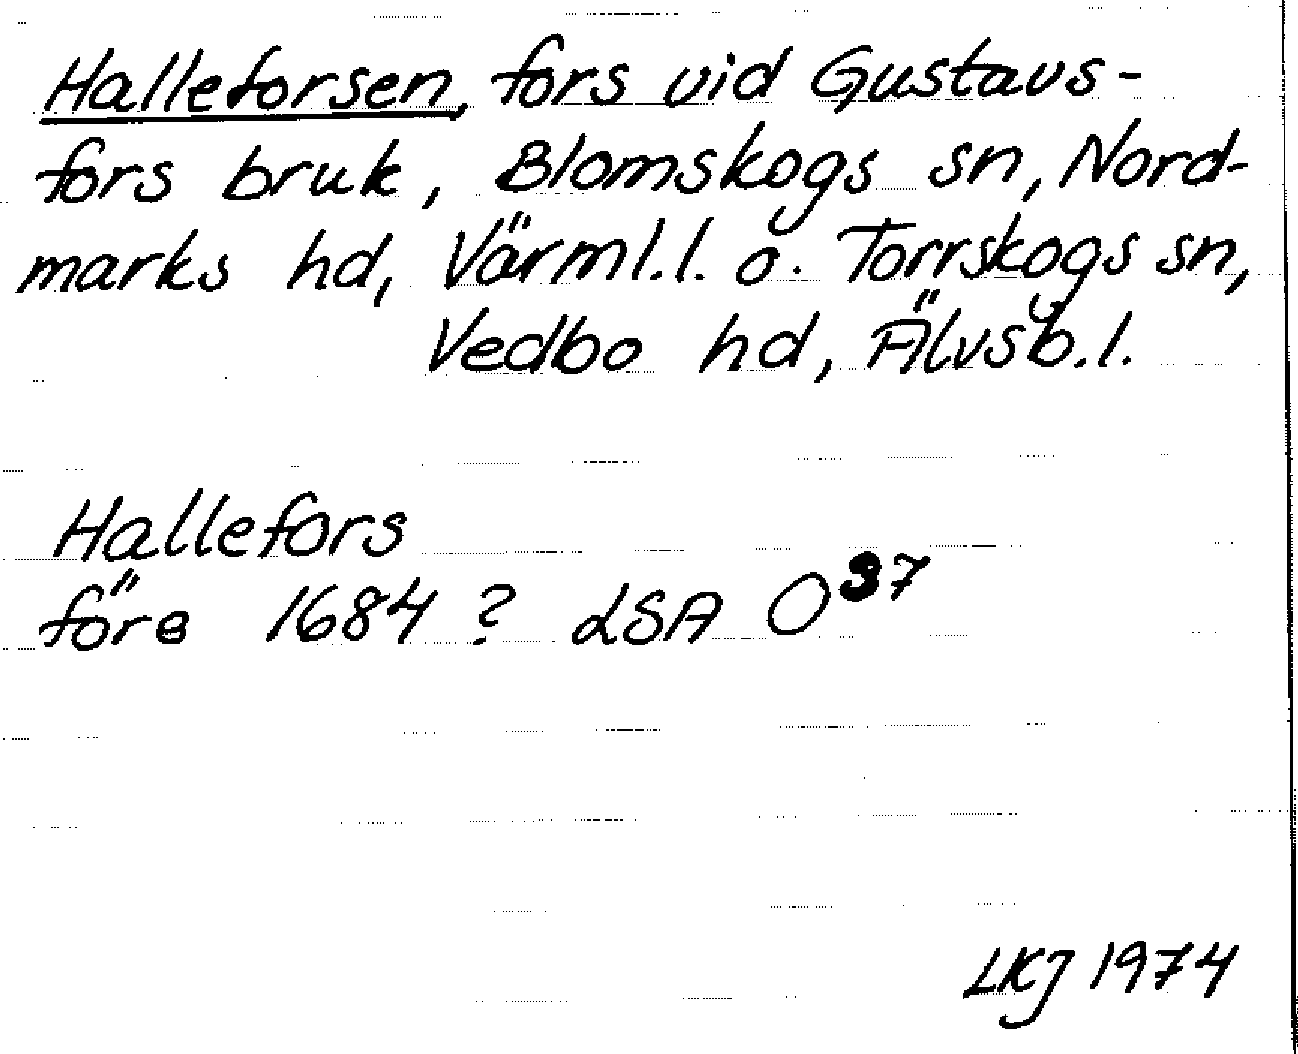 Halleforsen, fors vid Gustavs-
fors bruk, Blomskogs sn, Nord-
marks hd, Värml.l. o. Torrskogs sn,
Vedbo hd, Älvsb.l.
Hallefors
före 1684? LSA O³⁷
LKJ 1974